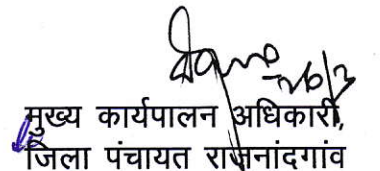 मुख्य कार्यपालन अधिकारी,
जिला पंचायत राजनांदगांव